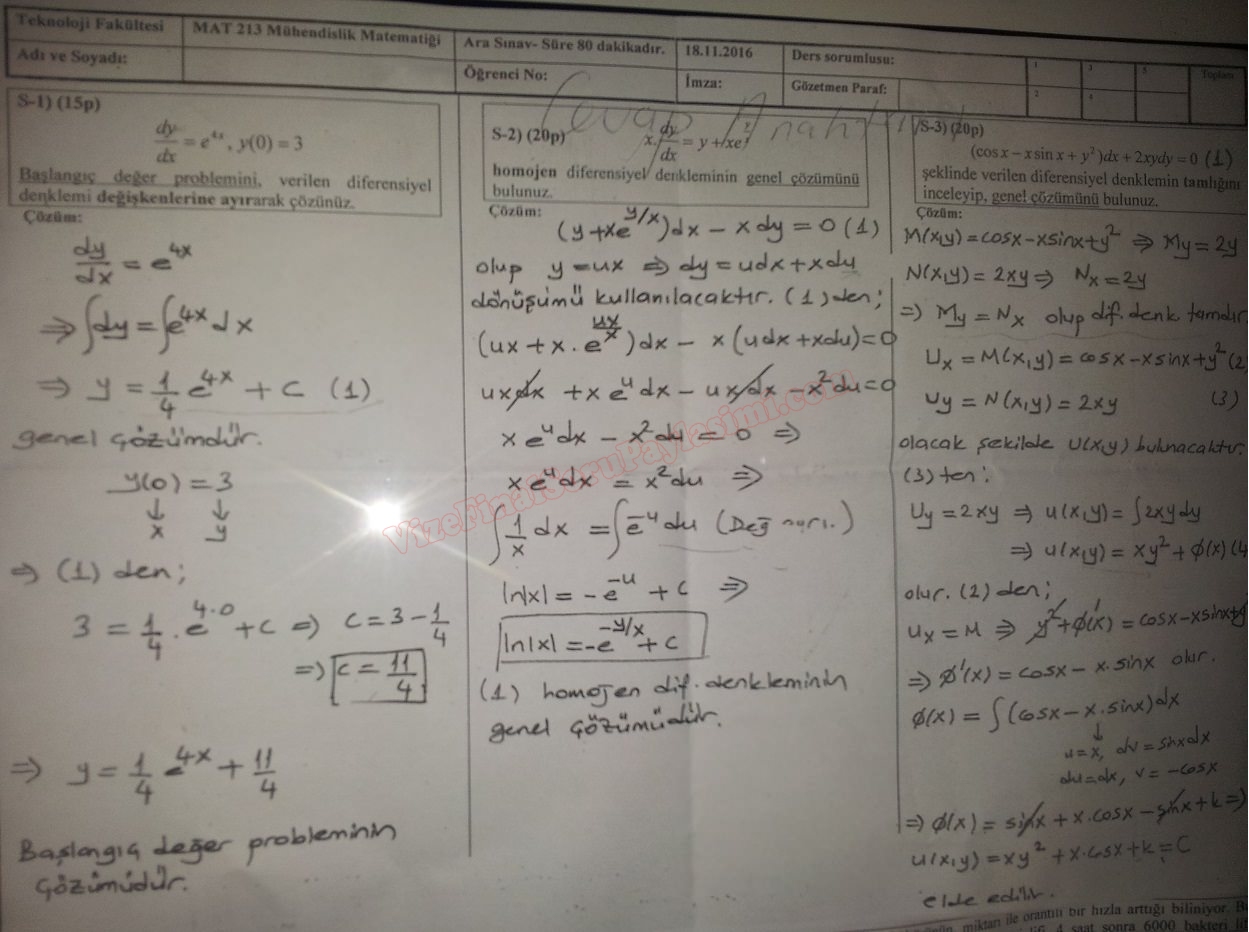 Teknoloji Fakültesi
MAT 213 Mühendislik Matematiği
Ara Sınav- Süre 80 dakikadır.
18.11.2016
Ders sorumlusu:
1
3
5
Toplam
Adı ve Soyadı:
Öğrenci No:
İmza:
Gözetmen Paraf:
2
4
Cevap Anahtarı
S-1) (15p)
dy/dx = e^{4x}, y(0) = 3
Başlangıç değer problemini, verilen diferensiyel
denklemi değişkenlerine ayırarak çözünüz.
Çözüm:
dy/dx = e^{4x}
⇒ ∫dy = ∫e^{4x} dx
⇒ y = 1/4 e^{4x} + c (1)
genel çözümdür.
y(0) = 3
↓ ↓
x y
⇒ (1) den;
3 = 1/4 . e^{4.0} + c ⇒ c = 3 - 1/4
⇒ c = 11/4
⇒ y = 1/4 e^{4x} + 11/4
Başlangıç değer probleminin
çözümüdür.
S-2) (20p)
x. dy/dx = y + xe^{y/x}
homojen diferensiyel denkleminin genel çözümünü
bulunuz.
Çözüm:
(y + xe^{y/x})dx - x dy = 0 (1)
olup y = ux ⇒ dy = udx + xdu
dönüşümü kullanılacaktır. (1) den;
(ux + x.e^{ux/x})dx - x(udx + xdu) = 0
uxdx + x e^u dx - uxdx - x²du = 0
x e^u dx - x² du = 0 ⇒
x e^u dx = x² du ⇒
∫ 1/x dx = ∫ e^{-u} du (Değ. ayrı.)
ln|x| = -e^{-u} + c ⇒
ln|x| = -e^{-y/x} + c
(1) homojen dif. denkleminin
genel çözümüdür.
S-3) (20p)
(cos x - x sin x + y²)dx + 2xydy = 0 (1)
şeklinde verilen diferensiyel denklemin tamlığını
inceleyip, genel çözümünü bulunuz.
Çözüm:
M(x,y) = cosx - xsinx + y² ⇒ My = 2y
N(x,y) = 2xy ⇒ Nx = 2y
⇒ My = Nx olup dif. denk tamdır.
Ux = M(x,y) = cosx - xsinx + y² (2)
Uy = N(x,y) = 2xy (3)
olacak şekilde U(x,y) bulunacaktır.
(3) ten;
Uy = 2xy ⇒ u(x,y) = ∫2xy dy
⇒ u(x,y) = xy² + ϕ(x) (4
olur. (2) den;
ux = M ⇒ y² + ϕ'(x) = cosx - xsinx + y²
⇒ ϕ'(x) = cosx - x.sinx olur.
ϕ(x) = ∫(cosx - x.sinx)dx
↓
u = x, dv = sinxdx
du = dx, v = -cosx
⇒ ϕ(x) = sinx + x.cosx - sinx + k ⇒
u(x,y) = xy² + x.cosx + k = C
elde edilir.
VizeFinalSoruPaylasimi.com
miktarı ile orantılı bir hızla arttığı biliniyor.
4 saat sonra 6000 bakteri